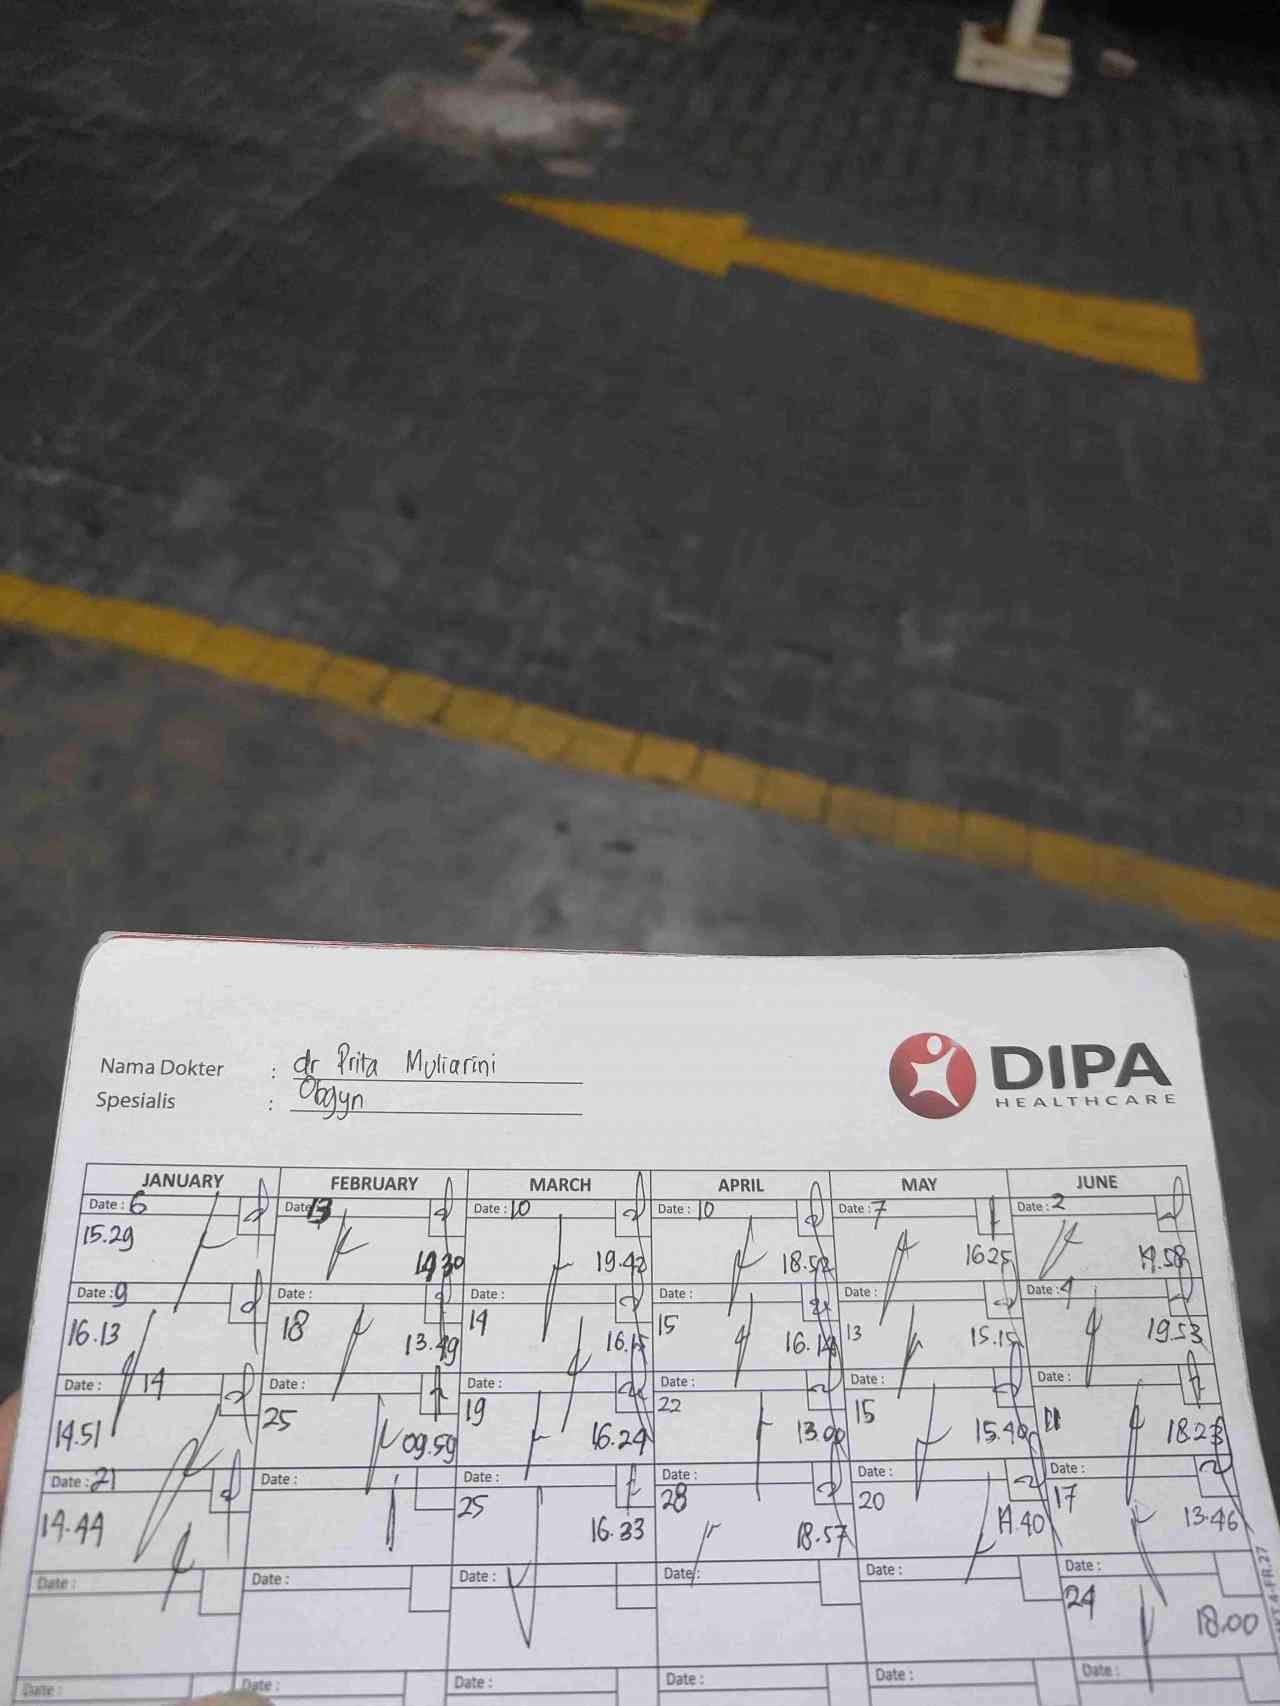 Nama Dokter : dr Prita Muliarini
Spesialis : Obgyn
DIPA
HEALTHCARE
JANUARY FEBRUARY MARCH APRIL MAY JUNE
Date : 6 Date : 13 Date : 10 Date : 10 Date : 7 Date : 2
15.29 14.30 19.42 18.52 16.25 14.58
Date : 9 Date : Date : Date : Date : Date : 4
16.13 18 13.49 14 16.15 15 16.14 13 15.15 19.53
Date : 14 Date : Date : Date : Date : Date :
14.51 25 09.59 19 16.24 22 13.00 15 15.40 11 18.23
Date : 21 Date : Date : Date : Date : Date :
14.44 25 16.33 28 18.57 20 14.40 17 13.46
Date : Date : Date : Date : Date : Date :
24 18.00
Date : Date : Date : Date : Date : Date :